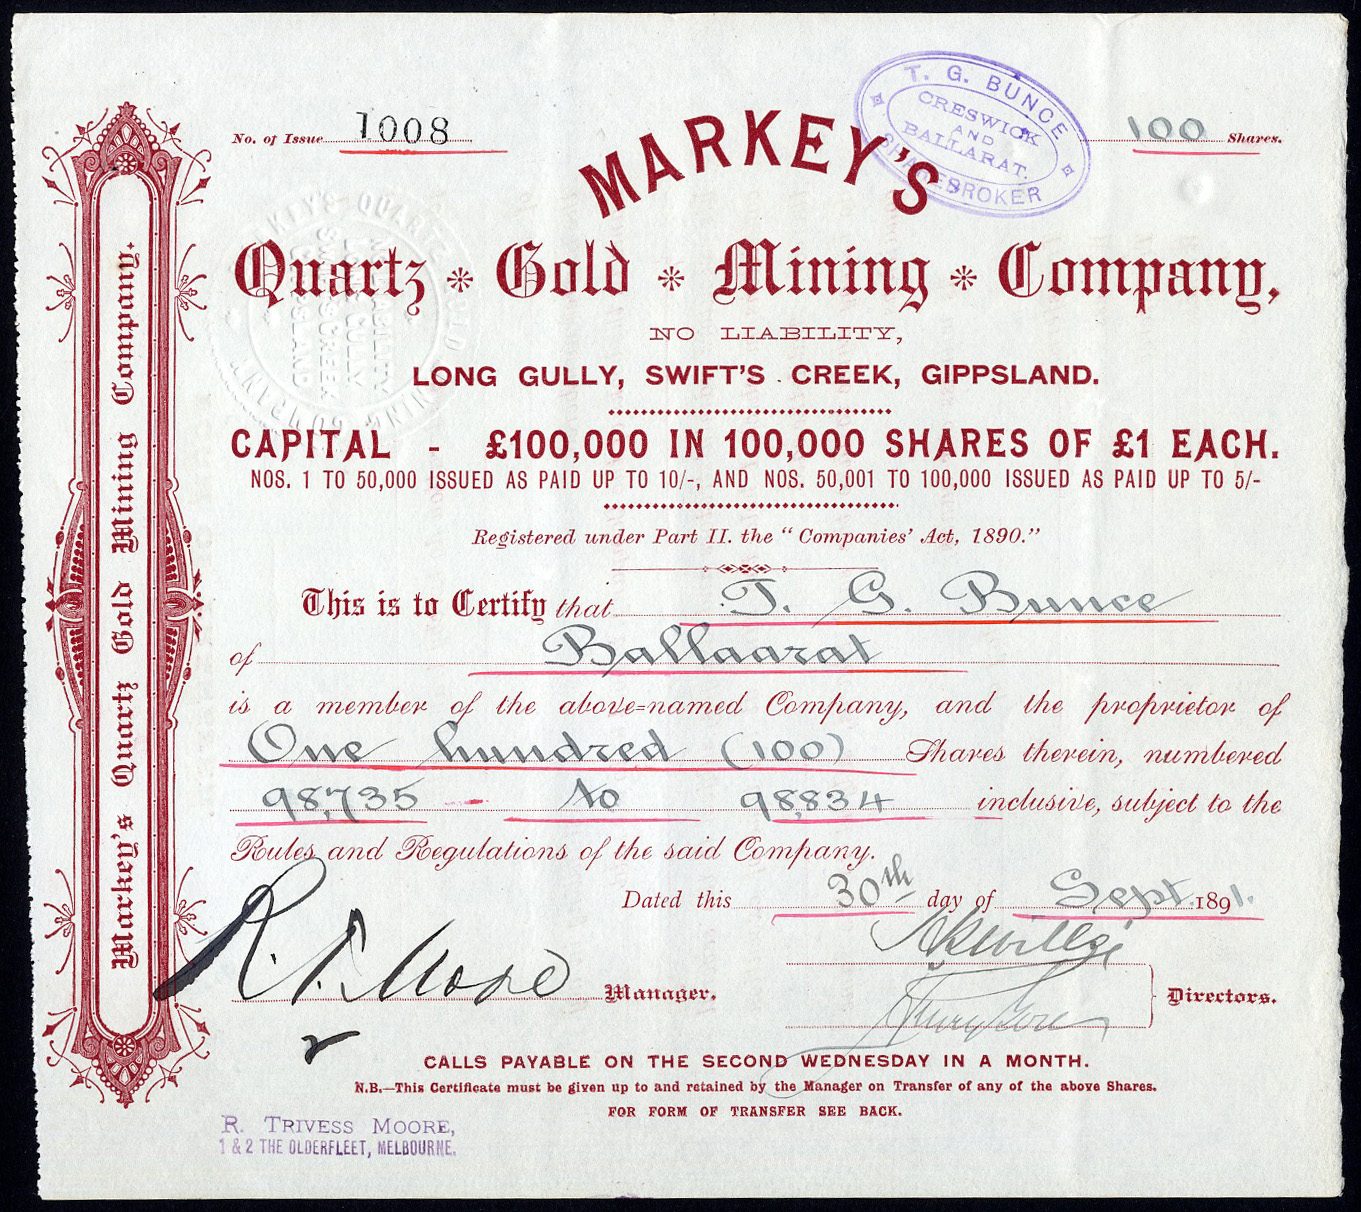 No. of Issue 1008
T. G. BUNCE
CRESWICK
AND
BALLARAT.
SHAREBROKER
100 Shares.
MARKEY'S
Quartz Gold Mining Company,
NO LIABILITY,
LONG GULLY, SWIFT'S CREEK, GIPPSLAND.
CAPITAL - £100,000 IN 100,000 SHARES OF £1 EACH.
NOS. 1 TO 50,000 ISSUED AS PAID UP TO 10/-, AND NOS. 50,001 TO 100,000 ISSUED AS PAID UP TO 5/-
Registered under Part II. the "Companies' Act, 1890."
This is to Certify that T. G. Bunce
of Ballaarat
is a member of the above-named Company, and the proprietor of
One hundred (100) Shares therein, numbered
98,735 - to 98,834 inclusive, subject to the
Rules and Regulations of the said Company.
Dated this 30th day of Sept. 1891.
R. T. Moore Manager.
Directors.
CALLS PAYABLE ON THE SECOND WEDNESDAY IN A MONTH.
N.B.—This Certificate must be given up to and retained by the Manager on Transfer of any of the above Shares.
FOR FORM OF TRANSFER SEE BACK.
R. TRIVESS MOORE,
1 & 2 THE OLDERFLEET, MELBOURNE.
Markey's Quartz Gold Mining Company.